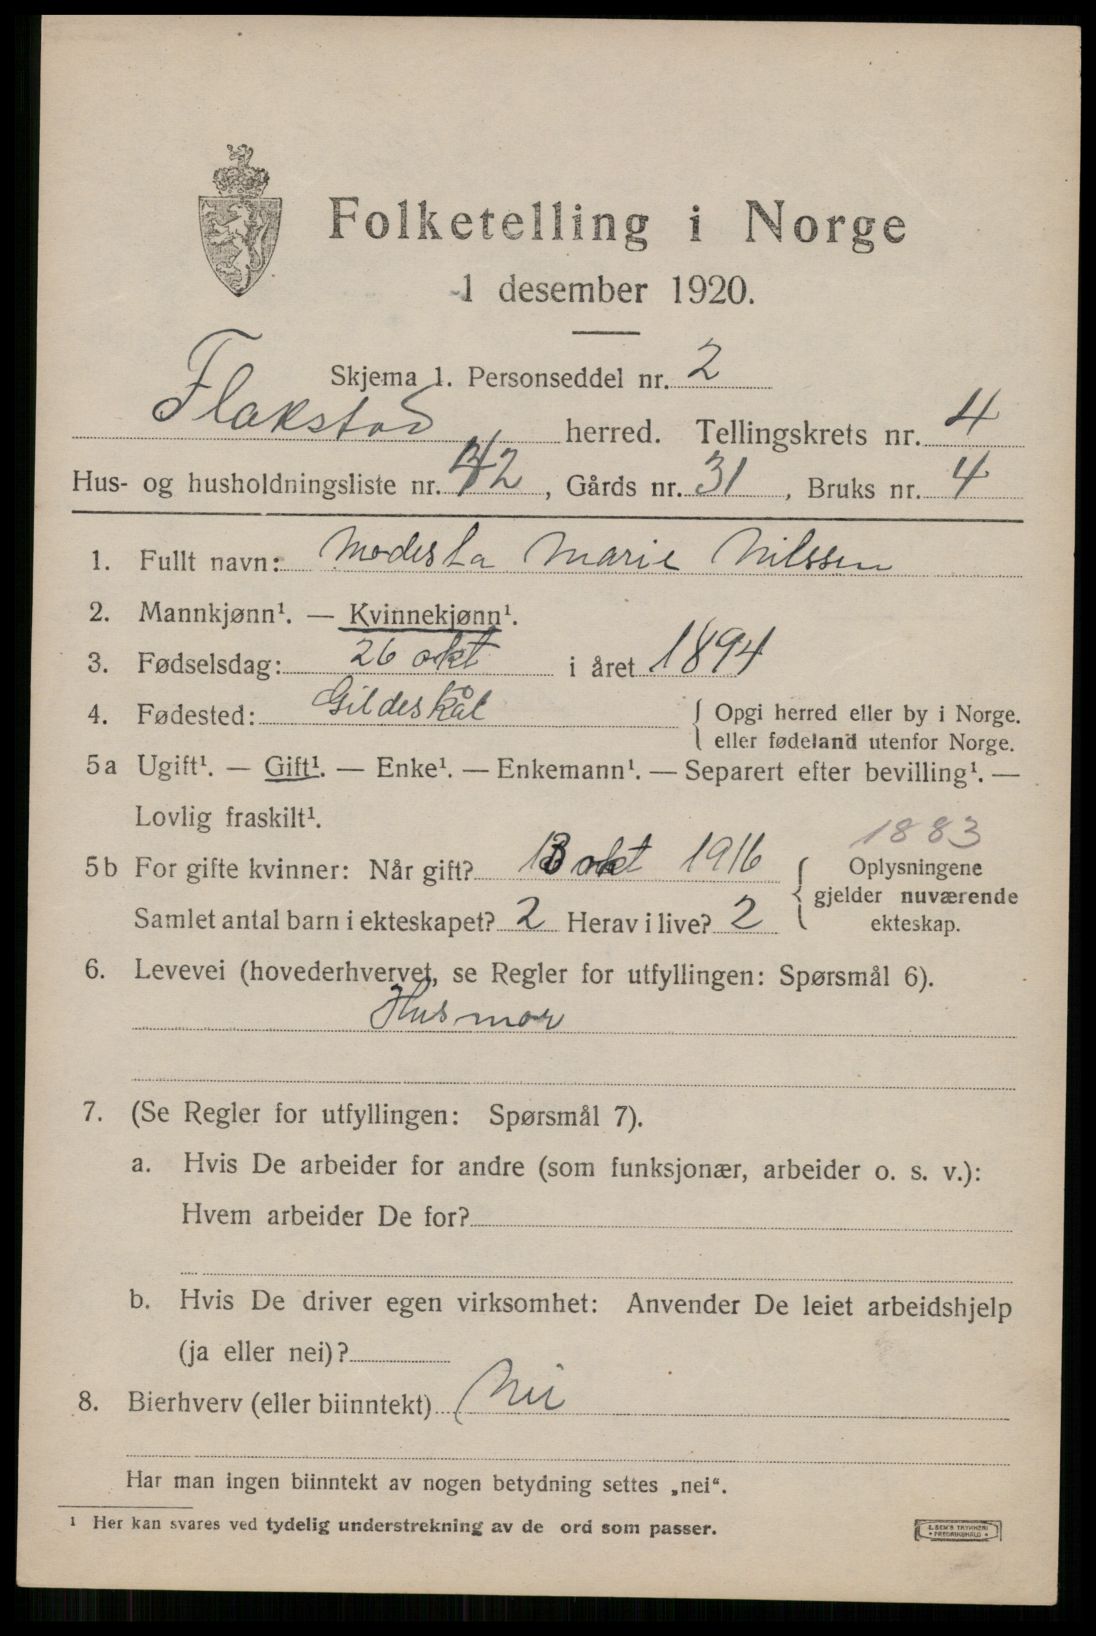 Folketelling i Norge
1 desember 1920.
Skjema 1. Personseddel nr. 2
Flakstad herred. Tellingskrets nr. 4
Hus- og husholdningsliste nr. 42, Gårds nr. 31, Bruks nr. 4
1. Fullt navn: Modesta Marie Nilssen
2. Mannkjønn¹. — Kvinnekjønn¹.
3. Fødselsdag: 26 okt i året 1894
4. Fødested: Gildeskål { Opgi herred eller by i Norge.
eller fødeland utenfor Norge.
5a Ugift¹. — Gift¹. — Enke¹. — Enkemann¹. — Separert efter bevilling¹. —
Lovlig fraskilt¹.
1883
5b For gifte kvinner: Når gift? 13 okt 1916 { Oplysningene
gjelder nuværende
Samlet antal barn i ekteskapet? 2 Herav i live? 2 ekteskap.
6. Levevei (hovederhvervet, se Regler for utfyllingen: Spørsmål 6).
Husmor
7. (Se Regler for utfyllingen: Spørsmål 7).
a. Hvis De arbeider for andre (som funksjonær, arbeider o. s. v.):
Hvem arbeider De for?
b. Hvis De driver egen virksomhet: Anvender De leiet arbeidshjelp
(ja eller nei)?
8. Bierhverv (eller biinntekt) Nei
Har man ingen biinntekt av nogen betydning settes „nei“.
¹ Her kan svares ved tydelig understrekning av de ord som passer.
E. SEM'S TRYKKERI
FREDRIKSHALD